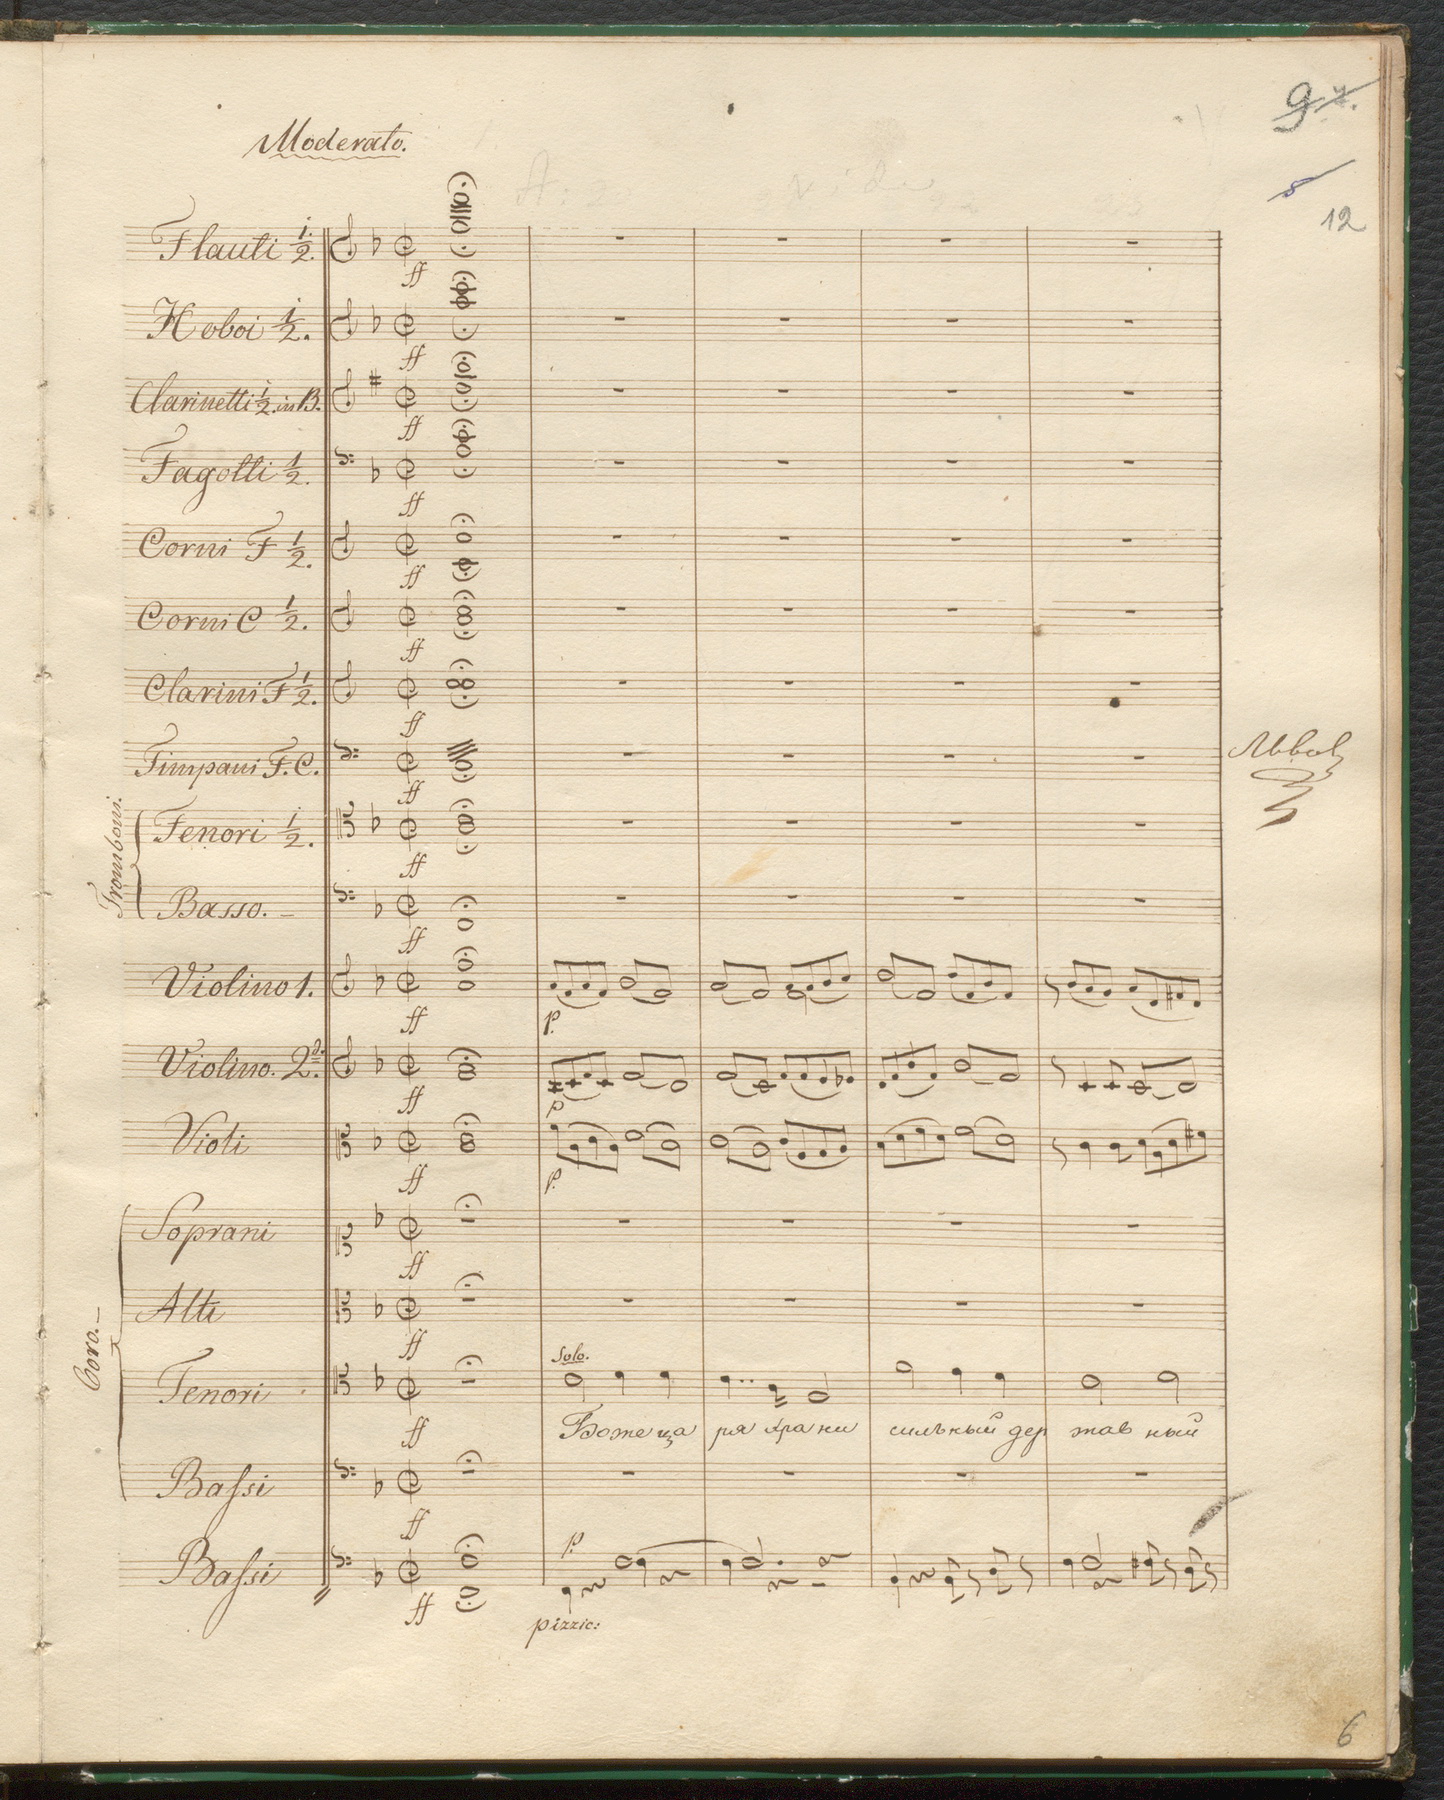 9
8
12
Moderato.
Flauti 1/2.
ff
Hoboi 1/2.
ff
Clarinetti 1/2. in B.
ff
Fagotti 1/2.
ff
Corni F 1/2.
ff
Corni C 1/2.
ff
Clarini F 1/2.
ff
Timpani F. C.
ff
Львов
Tromboni.
Tenori 1/2.
ff
Basso.
ff
Violino 1.
ff p.
Violino. 2do.
ff p
Violi
ff p.
Coro.
Soprani
ff
Alti
ff
Solo.
Tenori
ff
Боже ца ря хра ни сильный дер жав ный
Bassi
ff
p.
Bassi
ff
pizzic:
6